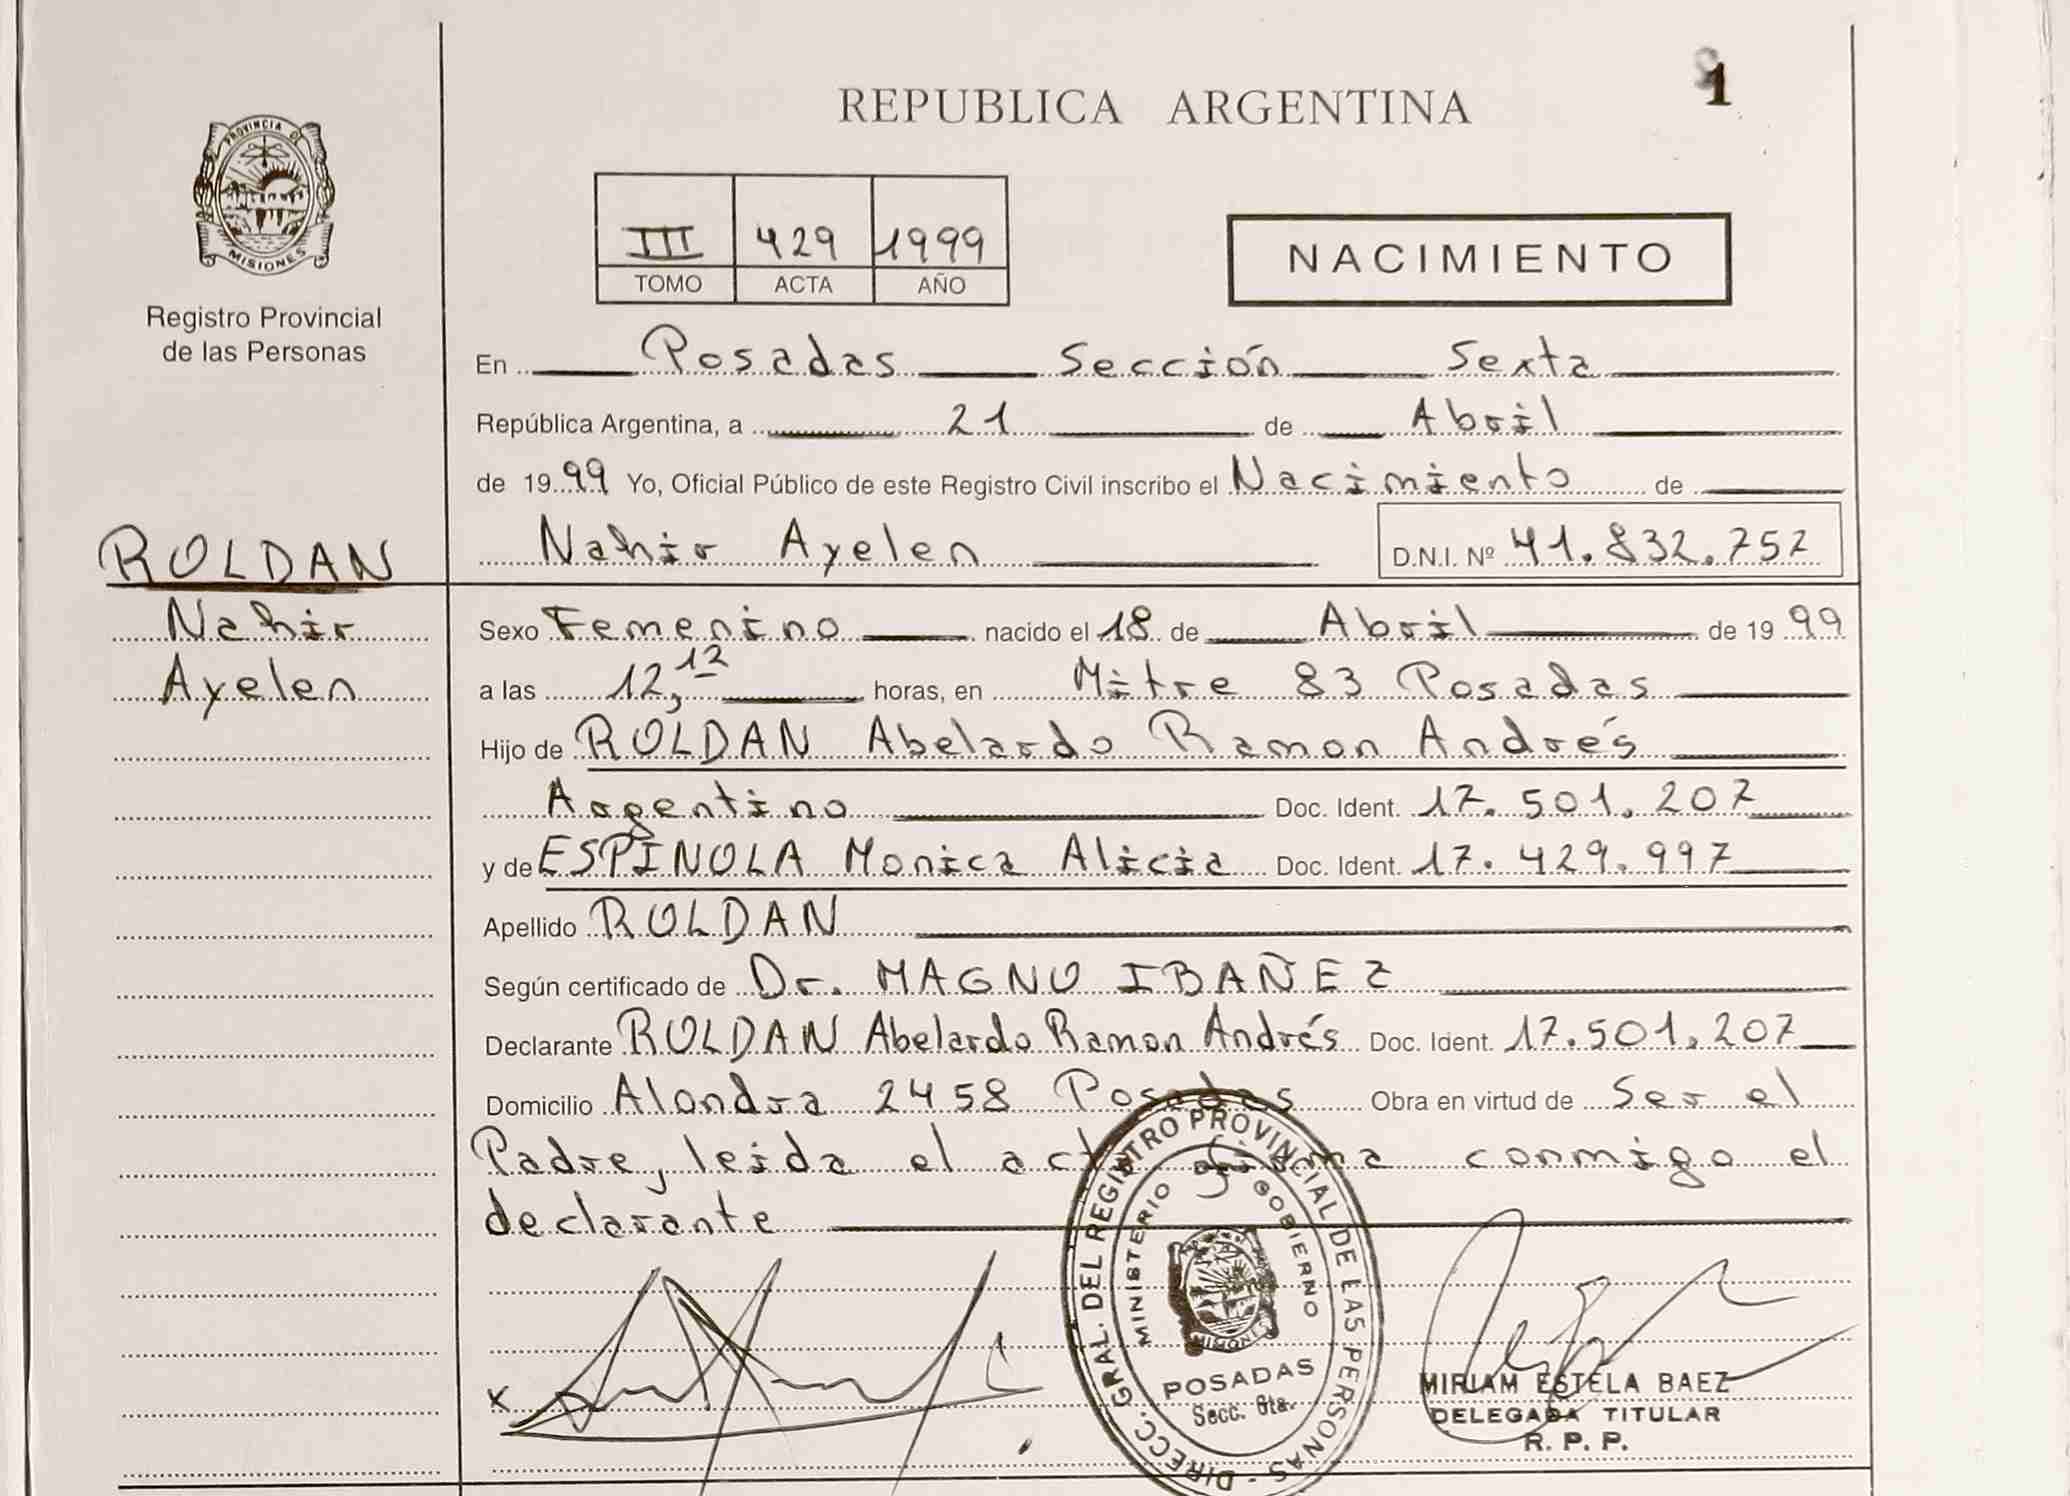 1
REPUBLICA ARGENTINA
PROVINCIA DE
MISIONES
Registro Provincial
de las Personas
III 429 1999
TOMO ACTA AÑO
NACIMIENTO
En Posadas Sección Sexta
República Argentina, a 21 de Abril
de 1999 Yo, Oficial Público de este Registro Civil inscribo el Nacimiento de
Nahir Ayelen D.N.I. Nº 41.832.757
ROLDAN
Nahir
Ayelen
Sexo Femenino nacido el 18 de Abril de 1999
a las 12,12 horas, en Mitre 83 Posadas
Hijo de ROLDAN Abelardo Ramon Andrés
Argentino Doc. Ident. 17.501.207
y de ESPINOLA Monica Alicia Doc. Ident. 17.429.997
Apellido ROLDAN
Según certificado de Dr. MAGNO IBAÑEZ
Declarante ROLDAN Abelardo Ramon Andrés Doc. Ident. 17.501.207
Domicilio Alondra 2458 Posadas Obra en virtud de Ser el
Padre, leida el acta firma conmigo el
declarante
DIRECC. GRAL. DEL REGISTRO PROVINCIAL DE LAS PERSONAS -
MINISTERIO GOBIERNO
MISIONES
POSADAS
Secc. 6ta.
x
MIRIAM ESTELA BAEZ
DELEGADA TITULAR
R. P. P.